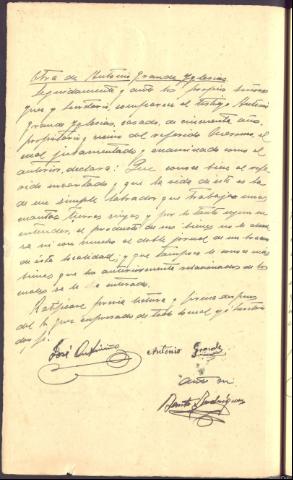 Otra de Antonio Grande Yglesias
Seguidamente y ante los propios señores
Juez y Secretario, comparece el testigo Antonio
Grande Yglesias, casado, de cincuenta años,
propietario, vecino del referido
cual juramentado y examinado como el
anterior, declara: Que conoce bien al refe-
rido encartado y que la vida de éste es la
de un simple labrador que trabaja unas
cuantas tierras suyas y por lo tanto segun su
entender, el producto de sus bienes no le alcan-
za ni con mucho el doble jornal de un bracero
de esta localidad; y que tampoco le conoce más
bienes que los anteriormente relacionados de los
cuales se le ha enterado.
Ratificase previa lectura y firma despues
del Sr Juez expresado de todo lo cual yo Secretario
doy fé.
José Antonio Grande
Ante mi
Benito Rodriguez